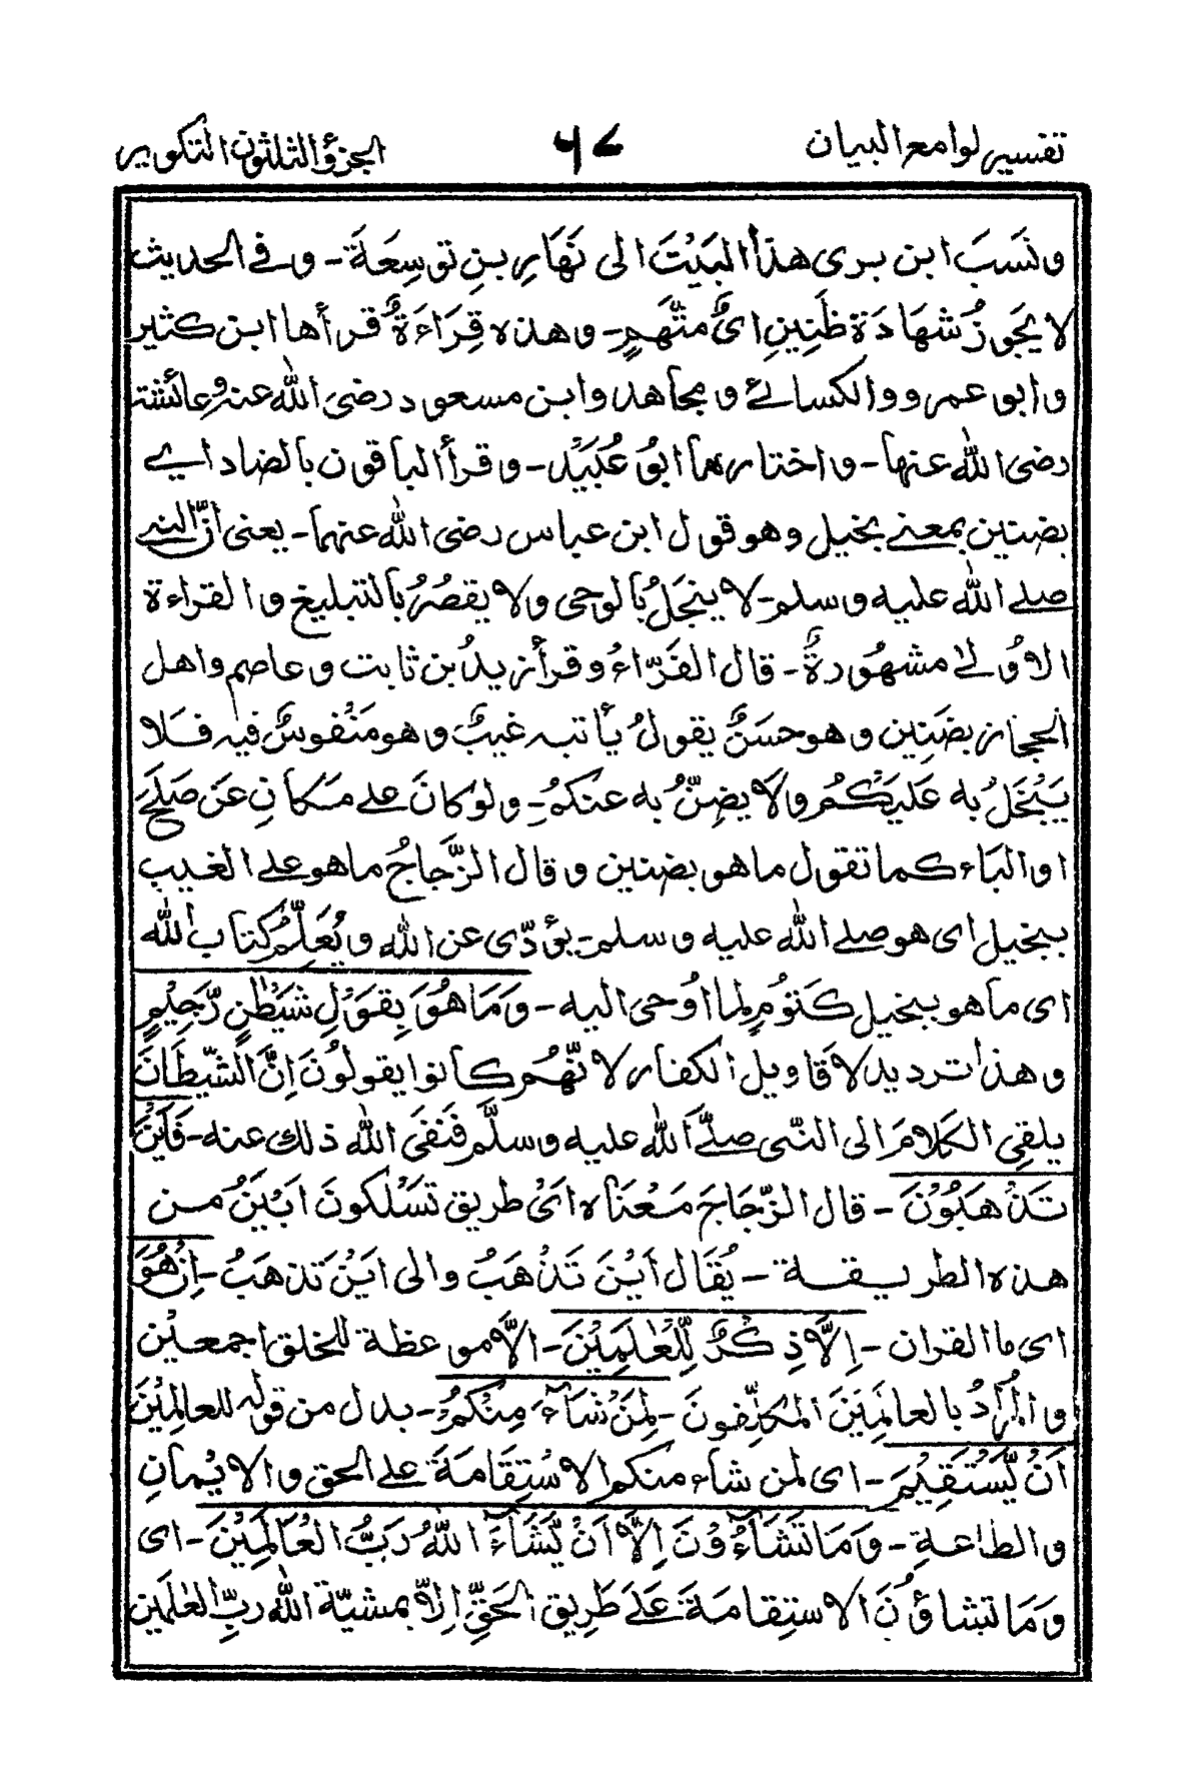 تفسير لوامع البيان ٦٧ الجزؤ الثلثون التكوير
ونَسَبَ ابن برى هذا البَيْتَ الى نَهَارِ بنِ توسِعَةَ - وفي الحديث
لا يَجَوزُ شهَادَة ظَنِينٍ اىْ مُتَّهَمٍ - وهذه قِرَاءَةٌ قرأها ابن كثير
وابو عمرو والكسائے ومجاهد وابن مسعود رضىَ الله عنه وعائشة
رضى الله عنها - واختارهما ابوُ عُبَيْد - وقرأ الباقون بالضاد اے
بضنين بمعنے بخيل وهو قول ابن عباس رضى الله عنهما - يعنى انّ النبے
صلے الله عليه وسلم - لا يبخَلُ بالوحى ولا يقصُرُ بالتبليغ والقراءة
الاوُلےٰ مشهُورةٌ - قال الفَرّاءُ وقرأ زيدُ بن ثابت وعاصم واهل
الحجاز بضَنِين وهو حسَنٌ يقولُ يأتيه غيبٌ وهو مَنْفوسٌ فيه فَلا
يَبْخَلُ به عَلَيْكُم ولا يضِنُّ به عنكمُ - ولو كانَ علے مَكانِ عَن صَلَحَ
او الباء كما تقول ما هو بضنين وقال الزَّجاجُ ما هو علے الغيب
ببخيل اى هو صلے الله عليه وسلم - يؤدّى عن الله ويُعَلِّمُ كتاب الله
اى ما هو ببخيل كَتوُمٍ لما اوُحى اليه - وَمَا هُوَ بِقَوْلِ شَيْطٰنٍ رَّجِيْمٍ
وهذا ترديد لاقاويل الكفار لانّهُم كانوا يقولوُنَ اِنَّ الشّيطَانَ
يلقِى الكَلامَ الى النّبى صلَّے الله عليه وسلَّم فَنَفىَ الله ذلك عنه - فَاَيْنَ
تَذْهَبُوْنَ - قال الزّجَاجَ مَعْنَاه اىْ طريق تسْلكونَ ابْيَنُ من
هذه الطريقة - يُقَال اَيْنَ تَذْهَبُ والى اَيْنَ تذهَبُ - اِنْ هُوَ
اى ما القران - اِلَّا ذِكْرٌ لِّلْعٰلَمِيْنَ - الَّا موعظة للخلق اجمعيْن
والمُرَادُ بالعالَمِيَنَ المكلِّفونَ - لِمَنْ شَآءَ مِنْكُمْ - بدل من قوله للعالمِيْنَ
اَنْ يَّسْتَقِيْمَ - اى لمن شاء منكم الاسْتِقَامَةَ علے الحق والايْمانِ
والطاعةِ - وَمَا تَشَآءُوْنَ اِلَّآ اَنْ يَّشَآءَ اللهُ رَبُّ الْعٰلَمِيْنَ - اى
وَمَا تشاؤُنَ الاستِقامَةَ عَلَےٰ طَرِيق الحَقِّ اِلّا بمشيّة الله ربِّ العٰلَمين